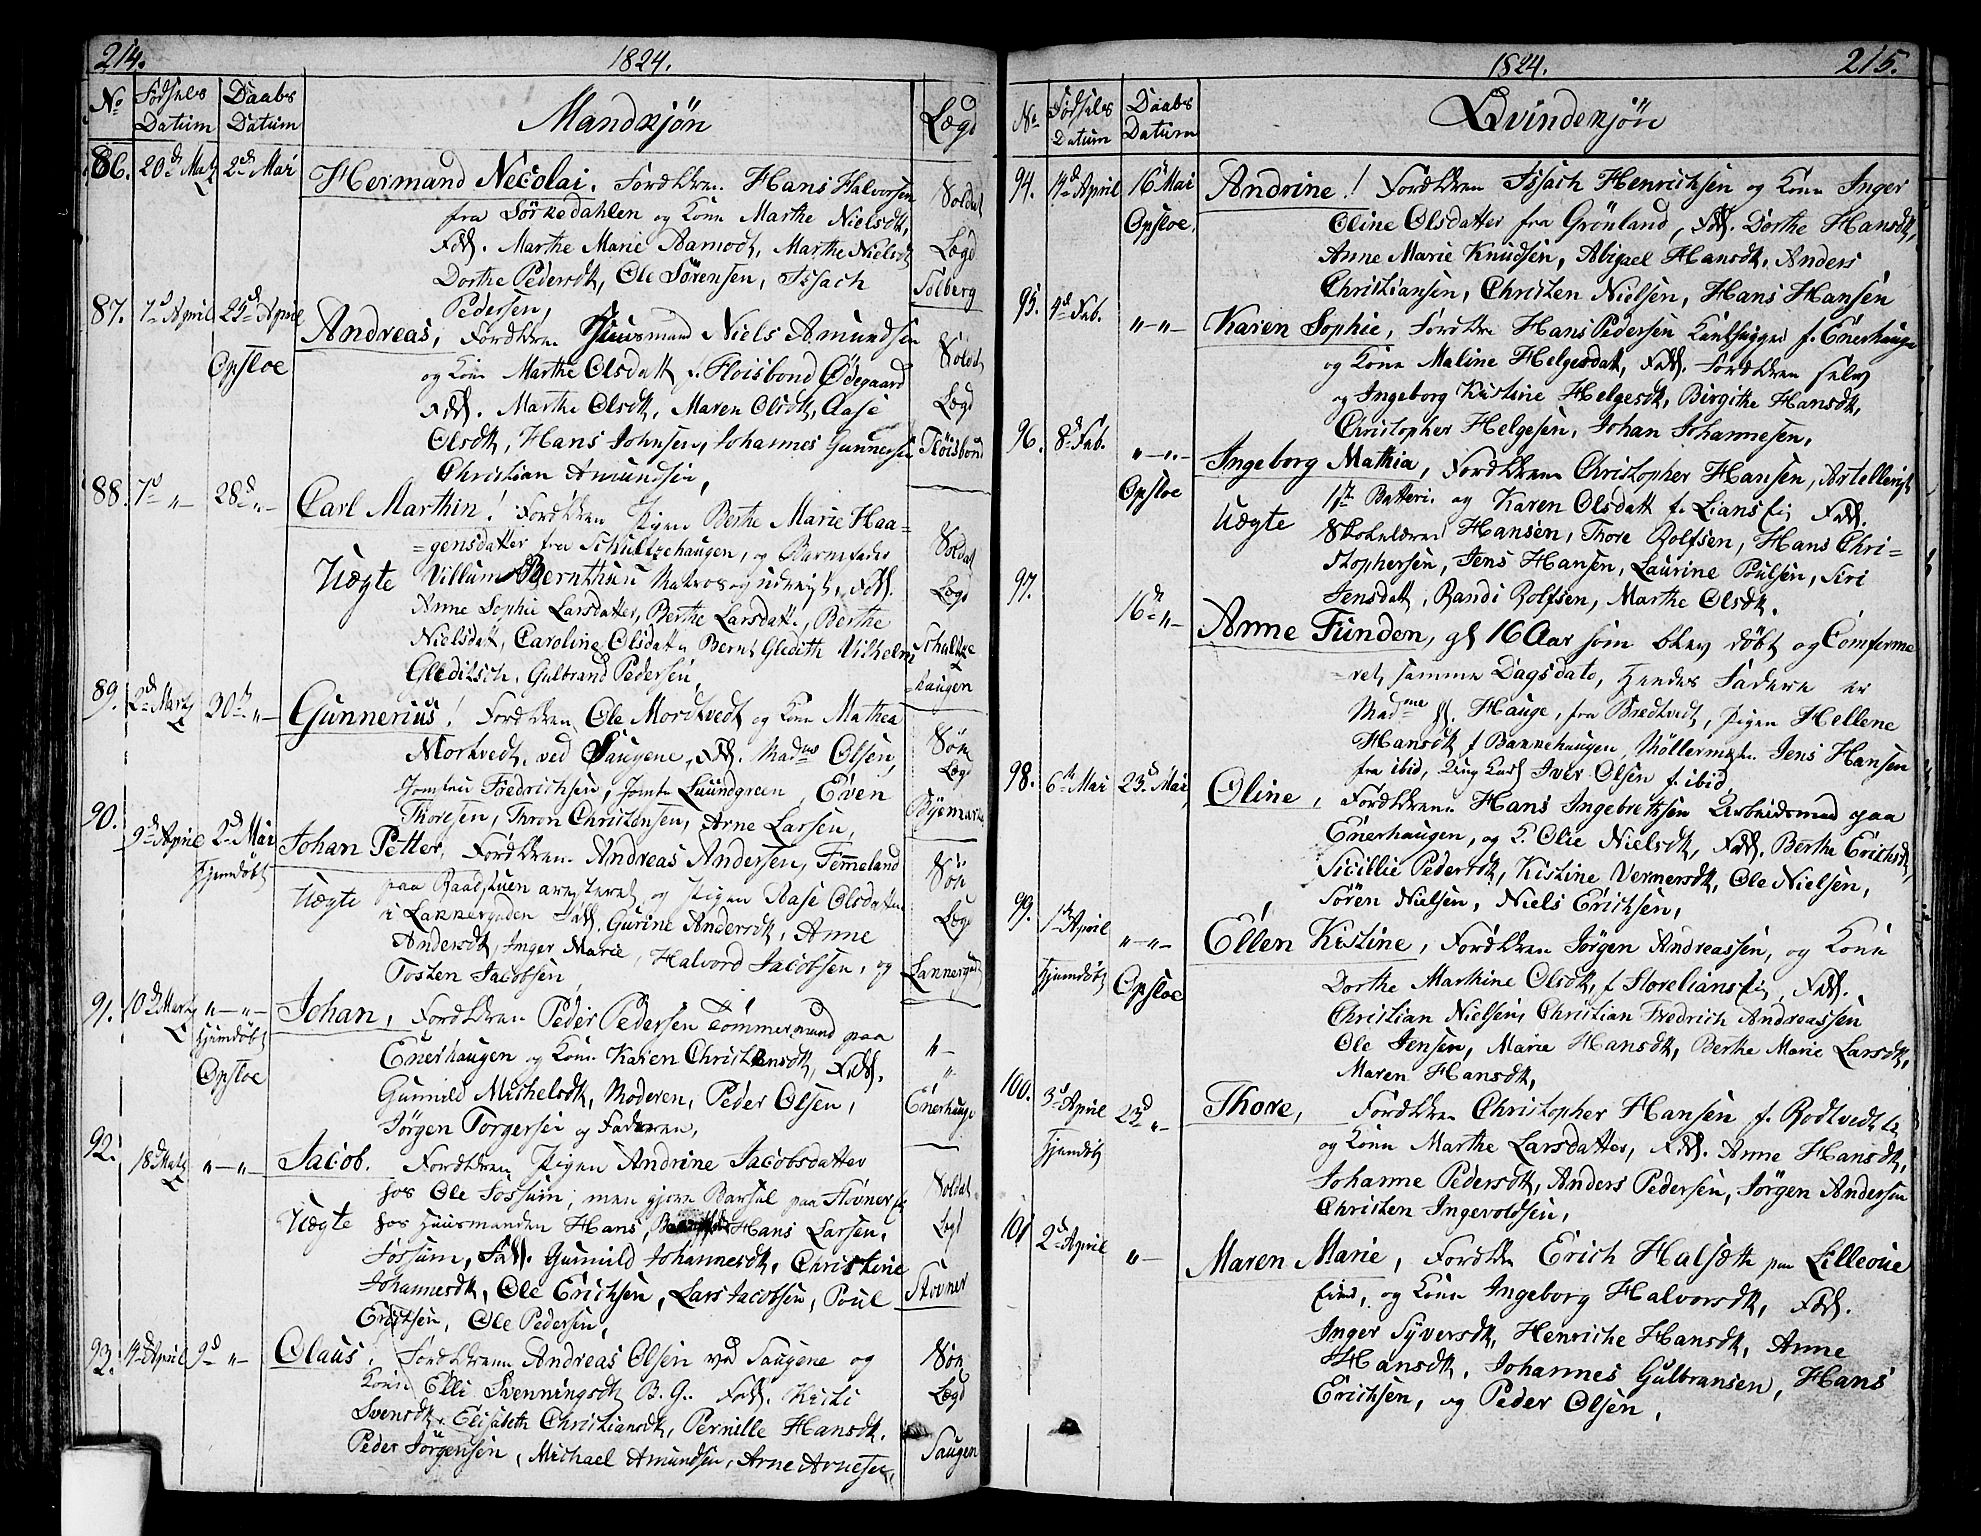 214.
1824.
No
Fødsels Datum
Daabs Datum
Mandkjön
Lægd
86. 20d Matz 2d Mai Hermand Necolai. Forældren Hans Halvorsen
fra Sörkedahlen og Kone Marthe Nielsdtr,
Fadd. Marthe Marie Aamodt, Marthe Nielsdtr
Dorthe Pedersdtr, Ole Sörensen, Issach
Pedersen,
Soldat
Lægd
Solberg
87. 7d April 25d April Andreas, Forældren Huusmand Niels Amundsen
Opsloe
og Kone Marthe Olsdatt f. Floisbond Ödegaard
Fadd. Marthe Olsdtr, Maren Olsdtr, Aase
Olsdtr, Hans Johnsen, Johannes Gunnersen
Christian Amundsen,
Soldt
Lægd
Flöisbond
88. 7d " 28d " Carl Marthin! Forældren Pigen Berthe Marie Haa=
=gensdatter fra Schultzehaugen, og Barnefader
Uægte Villum Bernthsen Matros og udreigst, Fadd.
Anne Sophie Larsdatter, Berthe Larsdatt., Berthe
Nielsdatt, Caroline Olsdatt, Bernt Gledith Vilhelm
Gleditsch, Gulbrand Pedersen,
Soldat
Lægd
Schultze
haugen
89. 2d Martz 30d " Gunnerius! Forældren Ole Mordtvedt og Kone Mathea
Mortvedt, ved Saugene, Fadd. Madme Olsen,
Jomfru Fredrichsen, Jomfr Luundgreen, Even
Thoresen, Thron Christensen, Arne Larsen,
Søn
Lægd
Byemarken
90. 9d April 2d Mai Johan Petter, Forældren Andreas Andersen, Femeland
Hjemdöbt
Uægte
paa Raadstuen aresteret, og Pigen Aase Olsdatter
i Lannergaden Fadd. Gurine Andersdtr, Anne
Andersdtr, Inger Marie, Halvord Jacobsen, og
Tosten Jacobsen,
Søn
Lægd
Lannergad
91. 10d Martz " — " — Johan, Forældren Peder Pedersen Tömmermand paa
Hjemdöbt
Opsloe
Enerhaugen og Kone Karen Christensdtr, Fadd.
Gunnild Michelsdtr, Moderen, Peder Olsen,
Jörgen Torgersen og Faderen,
" —
"
Enerhauge
92. 18d Matz " — " — Jacob. Forældren Pigen Andrine Jacobsdatter
hos Ole Fossum, men gjorn Barsel paa Stovner
Uægte hos Huusmanden Hans, Hans Larsen,
Fossum, Fadd. Gunnild Johannesdtr, Christine
Johannesdtr, Ole Erichsen, Lars Jacobsen, Poul
Erichsen, Ole Pedersen,
Soldat
Lægd
Stovner
93. 14d April 9d " — Olaus. Forældrene Andreas Olsen ved Saugene og
Kone Elli Svenningsdtr B. G. Fadd. Kirsti
Svensdtr, Elisabeth Christiansdtr, Pernille Hansdtr,
Peder Jörgensen, Michael Amundsen, Arne Arnesen,
Søn
Lægd
Saugen
1824.
215.
No
Fødsels Datum
Daabs Datum
Qvindekjön
94. 14d April 16d Mai Andrine! Forældren Issach Henrichsen og Kone Inger
Opsloe,
Oline Olsdatter fra Grönland, Fadd. Dorthe Hansdtr,
Anne Marie Knudsen, Abigael Hansdtr, Anders
Christiansen, Christen Nielsen, Hans Hansen
95. 4d Feb. " — " — Karen Sophie, Forældre Hans Pedersen f. Enerhaugen
og Kone Maline Helgesdatt, Fadd. Forældren selv
og Ingeborg Kistine Helgesdtr, Birgithe Hansdtr,
Christopher Helgesen, Johan Johannesen,
96. 8d Feb. " — " — Ingeborg Mathia, Forældrene Christopher Hansen, Artellerist
Opsloe
Uægte
1ste Batteri og Karen Olsdatt f. Lians Eie Fadd.
Skolelærer Hansen, Thore Rolfsen, Hans Chri=
stophersen, Jens Hansen, Laurine Poulsen, Siri
Jensdatt, Randi Rolfsen, Marthe Olsdtr.
97. 16d " — Anne Funden, gl 16 Aar som blev döbt og Comferme
=ret, samme Dagsdato, hendes Fadere er
Madme H. Hauge, fra Bredtvedt, Pigen Hellene
Hansdtr f Bannehaugen, Möllermstr. Jens Hansen
fra ibid, Ung Karl Iver Olsen f. ibid,
98. 6d Mai 23d Mai, Oline, Forældrene Hans Ingebrektsen Arbeidsmad paa
Enerhaugen, og K. Olie Nielsdtr, Fadd. Berthe Erichsdtr,
Sicillie Pedersdtr, Kistine Vermersdtr, Ole Nielsen,
Sören Nielsen, Niels Erichsen,
99. 1d April " — " — Ellen Kistine, Forældren Jörgen Andreassen, og Kone
Hjemdöbt Opsloe
Dorthe Marthine Olsdtr, f Storelians Eie, Fadd.
Christian Nielsen, Christian Fredrich Andreassen
Ole Jensen, Marie Hansdtr, Berthe Marie Larsdtr,
Maren Hansdtr,
100. 3d April 23d " — Thore, Forældren Christopher Hansen f. Rodtvedt
Hjemdöbt
og Kone Marthe Larsdatter, Fadd. Anne Hansdtr,
Johanne Pedersdtr, Anders Pedersen, Jörgen Andersen
Christen Ingevoldsen,
101 2d April " — Maren Marie, Forældre Erich Halsæth paa Lilleoue
Eies, og Kone Ingeborg Halvorsdtr, Fadd.
Inger Syversdtr, Henriche Hansdtr, Anne
Hansdtr, Johannes Gulbransen, Hans
Erichsen, og Peder Olsen.